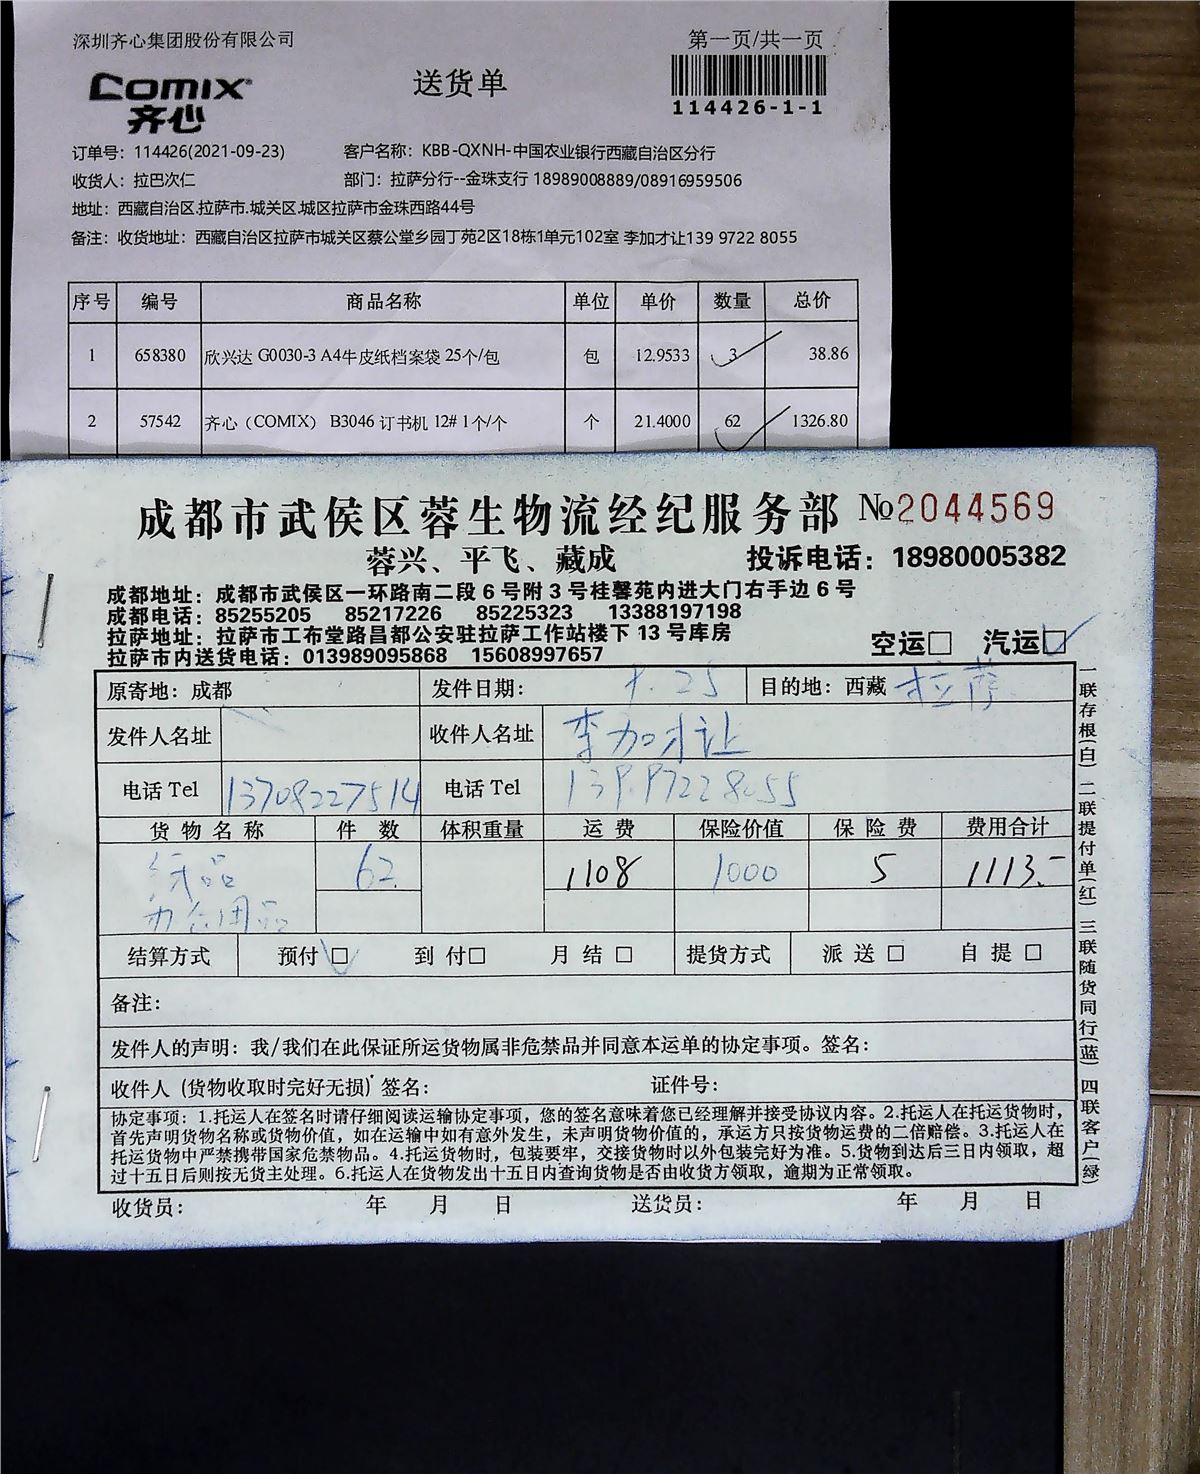 深圳齐心集团股份有限公司
第一页/共一页
COMIX
齐心
送货单
114426-1-1
订单号：114426(2021-09-23)
客户名称：KBB-QXNH-中国农业银行西藏自治区分行
收货人：拉巴次仁
部门：拉萨分行--金珠支行 18989008889/08916959506
地址：西藏自治区.拉萨市.城关区.城区拉萨市金珠西路44号
备注：收货地址：西藏自治区拉萨市城关区蔡公堂乡园丁苑2区18栋1单元102室 李加才让139 9722 8055
序号 编号 商品名称 单位 单价 数量 总价
1 658380 欣兴达 G0030-3 A4牛皮纸档案袋 25个/包 包 12.9533 3 38.86
2 57542 齐心（COMIX） B3046 订书机 12# 1个/个 个 21.4000 62 1326.80
成都市武侯区蓉生物流经纪服务部 №2044569
蓉兴、平飞、藏成 投诉电话：18980005382
成都地址：成都市武侯区一环路南二段6号附3号桂馨苑内进大门右手边6号
成都电话：85255205 85217226 85225323 13388197198
拉萨地址：拉萨市工布堂路昌都公安驻拉萨工作站楼下13号库房
拉萨市内送货电话：013989095868 15608997657
空运□ 汽运□
原寄地：成都 发件日期： 9.25 目的地：西藏 拉萨
发件人名址 收件人名址 李加才让
电话Tel 13708227514 电话Tel 139.97228055
货物名称 件数 体积重量 运费 保险价值 保险费 费用合计
纸品 62 1108 1000 5 1113.-
办公用品
结算方式 预付□ 到付□ 月结□ 提货方式 派送□ 自提□
备注：
发件人的声明：我/我们在此保证所运货物属非危禁品并同意本运单的协定事项。签名：
收件人（货物收取时完好无损）签名： 证件号：
协定事项：1.托运人在签名时请仔细阅读运输协定事项，您的签名意味着您已经理解并接受协议内容。2.托运人在托运货物时，
首先声明货物名称或货物价值，如在运输中如有意外发生，未声明货物价值的，承运方只按货物运费的二倍赔偿。3.托运人在
托运货物中严禁携带国家危禁物品。4.托运货物时，包装要牢，交接货物时以外包装完好为准。5.货物到达后三日内领取，超
过十五日后则按无货主处理。6.托运人在货物发出十五日内查询货物是否由收货方领取，逾期为正常领取。
收货员： 年 月 日 送货员： 年 月 日
一联存根(白) 二联提付单(红) 三联随货同行(蓝) 四联客户(绿)